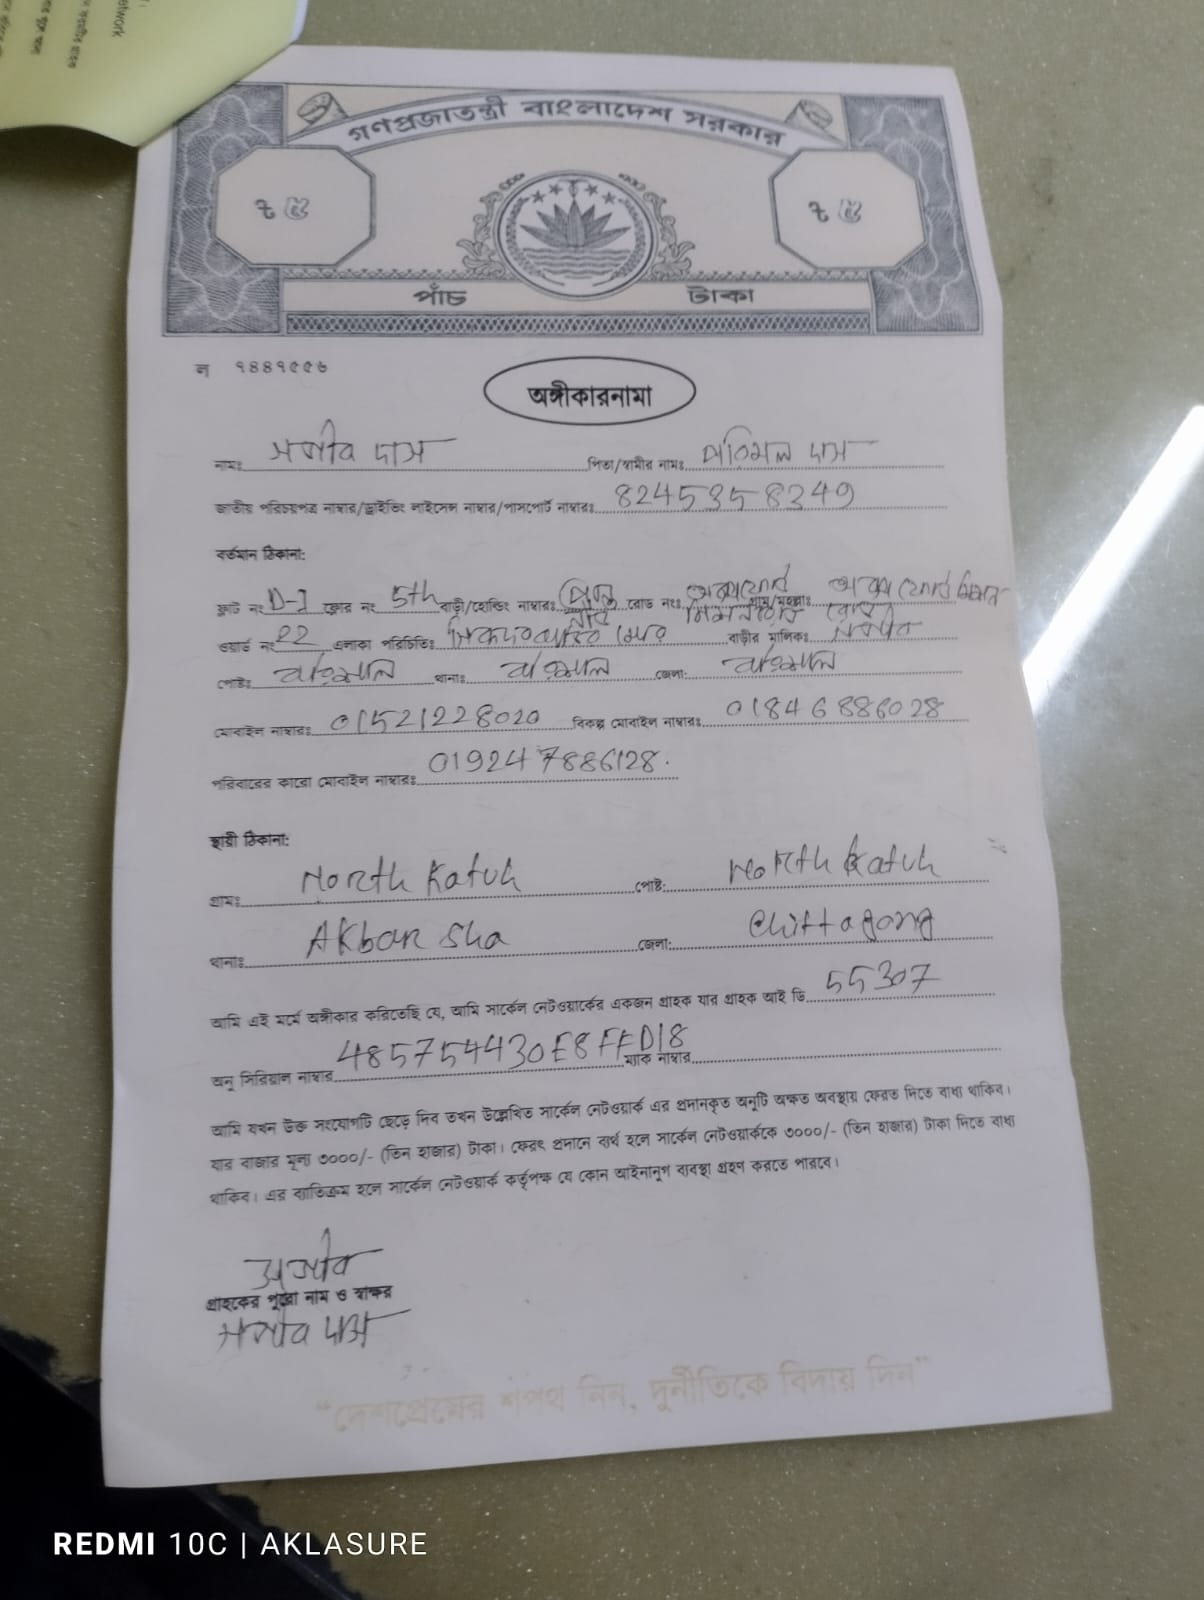 network
গণপ্রজাতন্ত্রী বাংলাদেশ সরকার
৳ ৫ ৳ ৫
পাঁচ টাকা
ল ৭৪৪৭৫৫৬
অঙ্গীকারনামা
নামঃ সজীব দাস পিতা/স্বামীর নামঃ পরিমল দাস
জাতীয় পরিচয়পত্র নাম্বার/ড্রাইভিং লাইসেন্স নাম্বার/পাসপোর্ট নাম্বারঃ 8245358349
বর্তমান ঠিকানা:
ফ্লাট নং D-1 ফ্লোর নং 5th বাড়ী/হোল্ডিং নাম্বারঃ রোড নংঃ অক্সফোর্ড মিশন রোড গ্রাম/মহল্লাঃ অক্সফোর্ড মিশন রোড
ওয়ার্ড নং 22 এলাকা পরিচিতিঃ বাড়ীর মালিকঃ
পোষ্টঃ বরিশাল থানাঃ বরিশাল জেলা: বরিশাল
মোবাইল নাম্বারঃ 01521228020 বিকল্প মোবাইল নাম্বারঃ 01846886028
পরিবারের কারো মোবাইল নাম্বারঃ 019247886128.
স্থায়ী ঠিকানা:
গ্রামঃ North Katuh পোষ্ট: North Katuh
থানাঃ Akbar sha জেলা: Chittagong
আমি এই মর্মে অঙ্গীকার করিতেছি যে, আমি সার্কেল নেটওয়ার্কের একজন গ্রাহক যার গ্রাহক আই ডি 55307
অনু সিরিয়াল নাম্বার 485754430E8FFD18 ম্যাক নাম্বার
আমি যখন উক্ত সংযোগটি ছেড়ে দিব তখন উল্লেখিত সার্কেল নেটওয়ার্ক এর প্রদানকৃত অনুটি অক্ষত অবস্থায় ফেরত দিতে বাধ্য থাকিব।
যার বাজার মূল্য ৩০০০/- (তিন হাজার) টাকা। ফেরৎ প্রদানে ব্যর্থ হলে সার্কেল নেটওয়ার্ককে ৩০০০/- (তিন হাজার) টাকা দিতে বাধ্য
থাকিব। এর ব্যতিক্রম হলে সার্কেল নেটওয়ার্ক কর্তৃপক্ষ যে কোন আইনানুগ ব্যবস্থা গ্রহণ করতে পারবে।
সজীব
গ্রাহকের পুরো নাম ও স্বাক্ষর
সজীব দাস
"দেশপ্রেমের শপথ নিন, দুর্নীতিকে বিদায় দিন"
REDMI 10C | AKLASURE